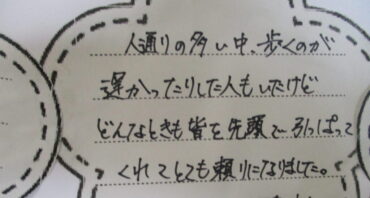 人通りの多い中、歩くのが
遅かったりした人もいたけど
どんなときも皆を先頭で引っぱって
くれてとても頼りになりました。